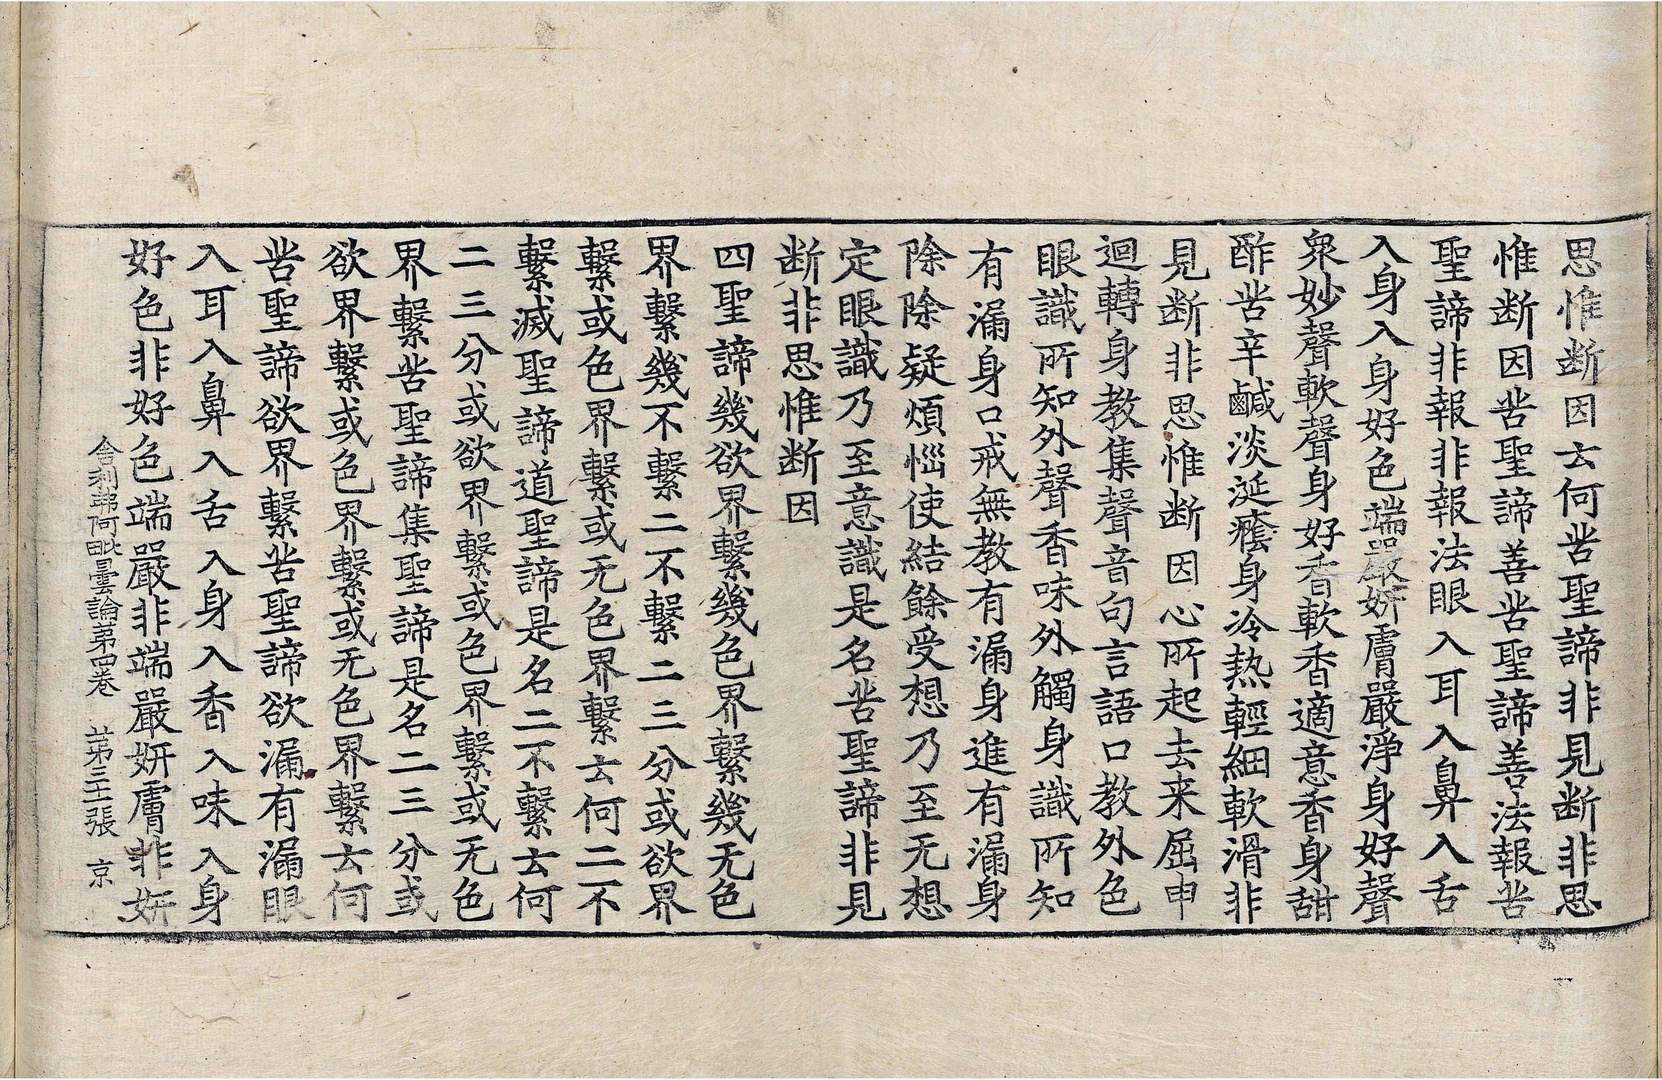 思惟断因云何苦聖諦非見断非思
惟断因苦聖諦善苦聖諦善法報苦
聖諦非報非報法眼入耳入鼻入舌
入身入身好色端嚴妍膚嚴淨身好聲
衆妙聲軟聲身好香軟香適意香身甜
酢苦辛鹹淡涎癊身冷熱輕細軟滑非
見断非思惟断因心所起去来屈申
迴轉身教集聲音句言語口教外色
眼識所知外聲香味外觸身識所知
有漏身口戒無教有漏身進有漏身
除除疑煩惱使結餘受想乃至无想
定眼識乃至意識是名苦聖諦非見
断非思惟断因
四聖諦幾欲界繫幾色界繫幾无色
界繫幾不繫二不繫二三分或欲界
繫或色界繫或无色界繫云何二不
繫滅聖諦道聖諦是名二不繫云何
二三分或欲界繫或色界繫或无色
界繫苦聖諦集聖諦是名二三分或
欲界繫或色界繫或无色界繫云何
苦聖諦欲界繫苦聖諦欲漏有漏眼
入耳入鼻入舌入身入香入味入身
好色非好色端嚴非端嚴妍膚非妍
舍利弗阿毗曇論第四卷 第三張 京